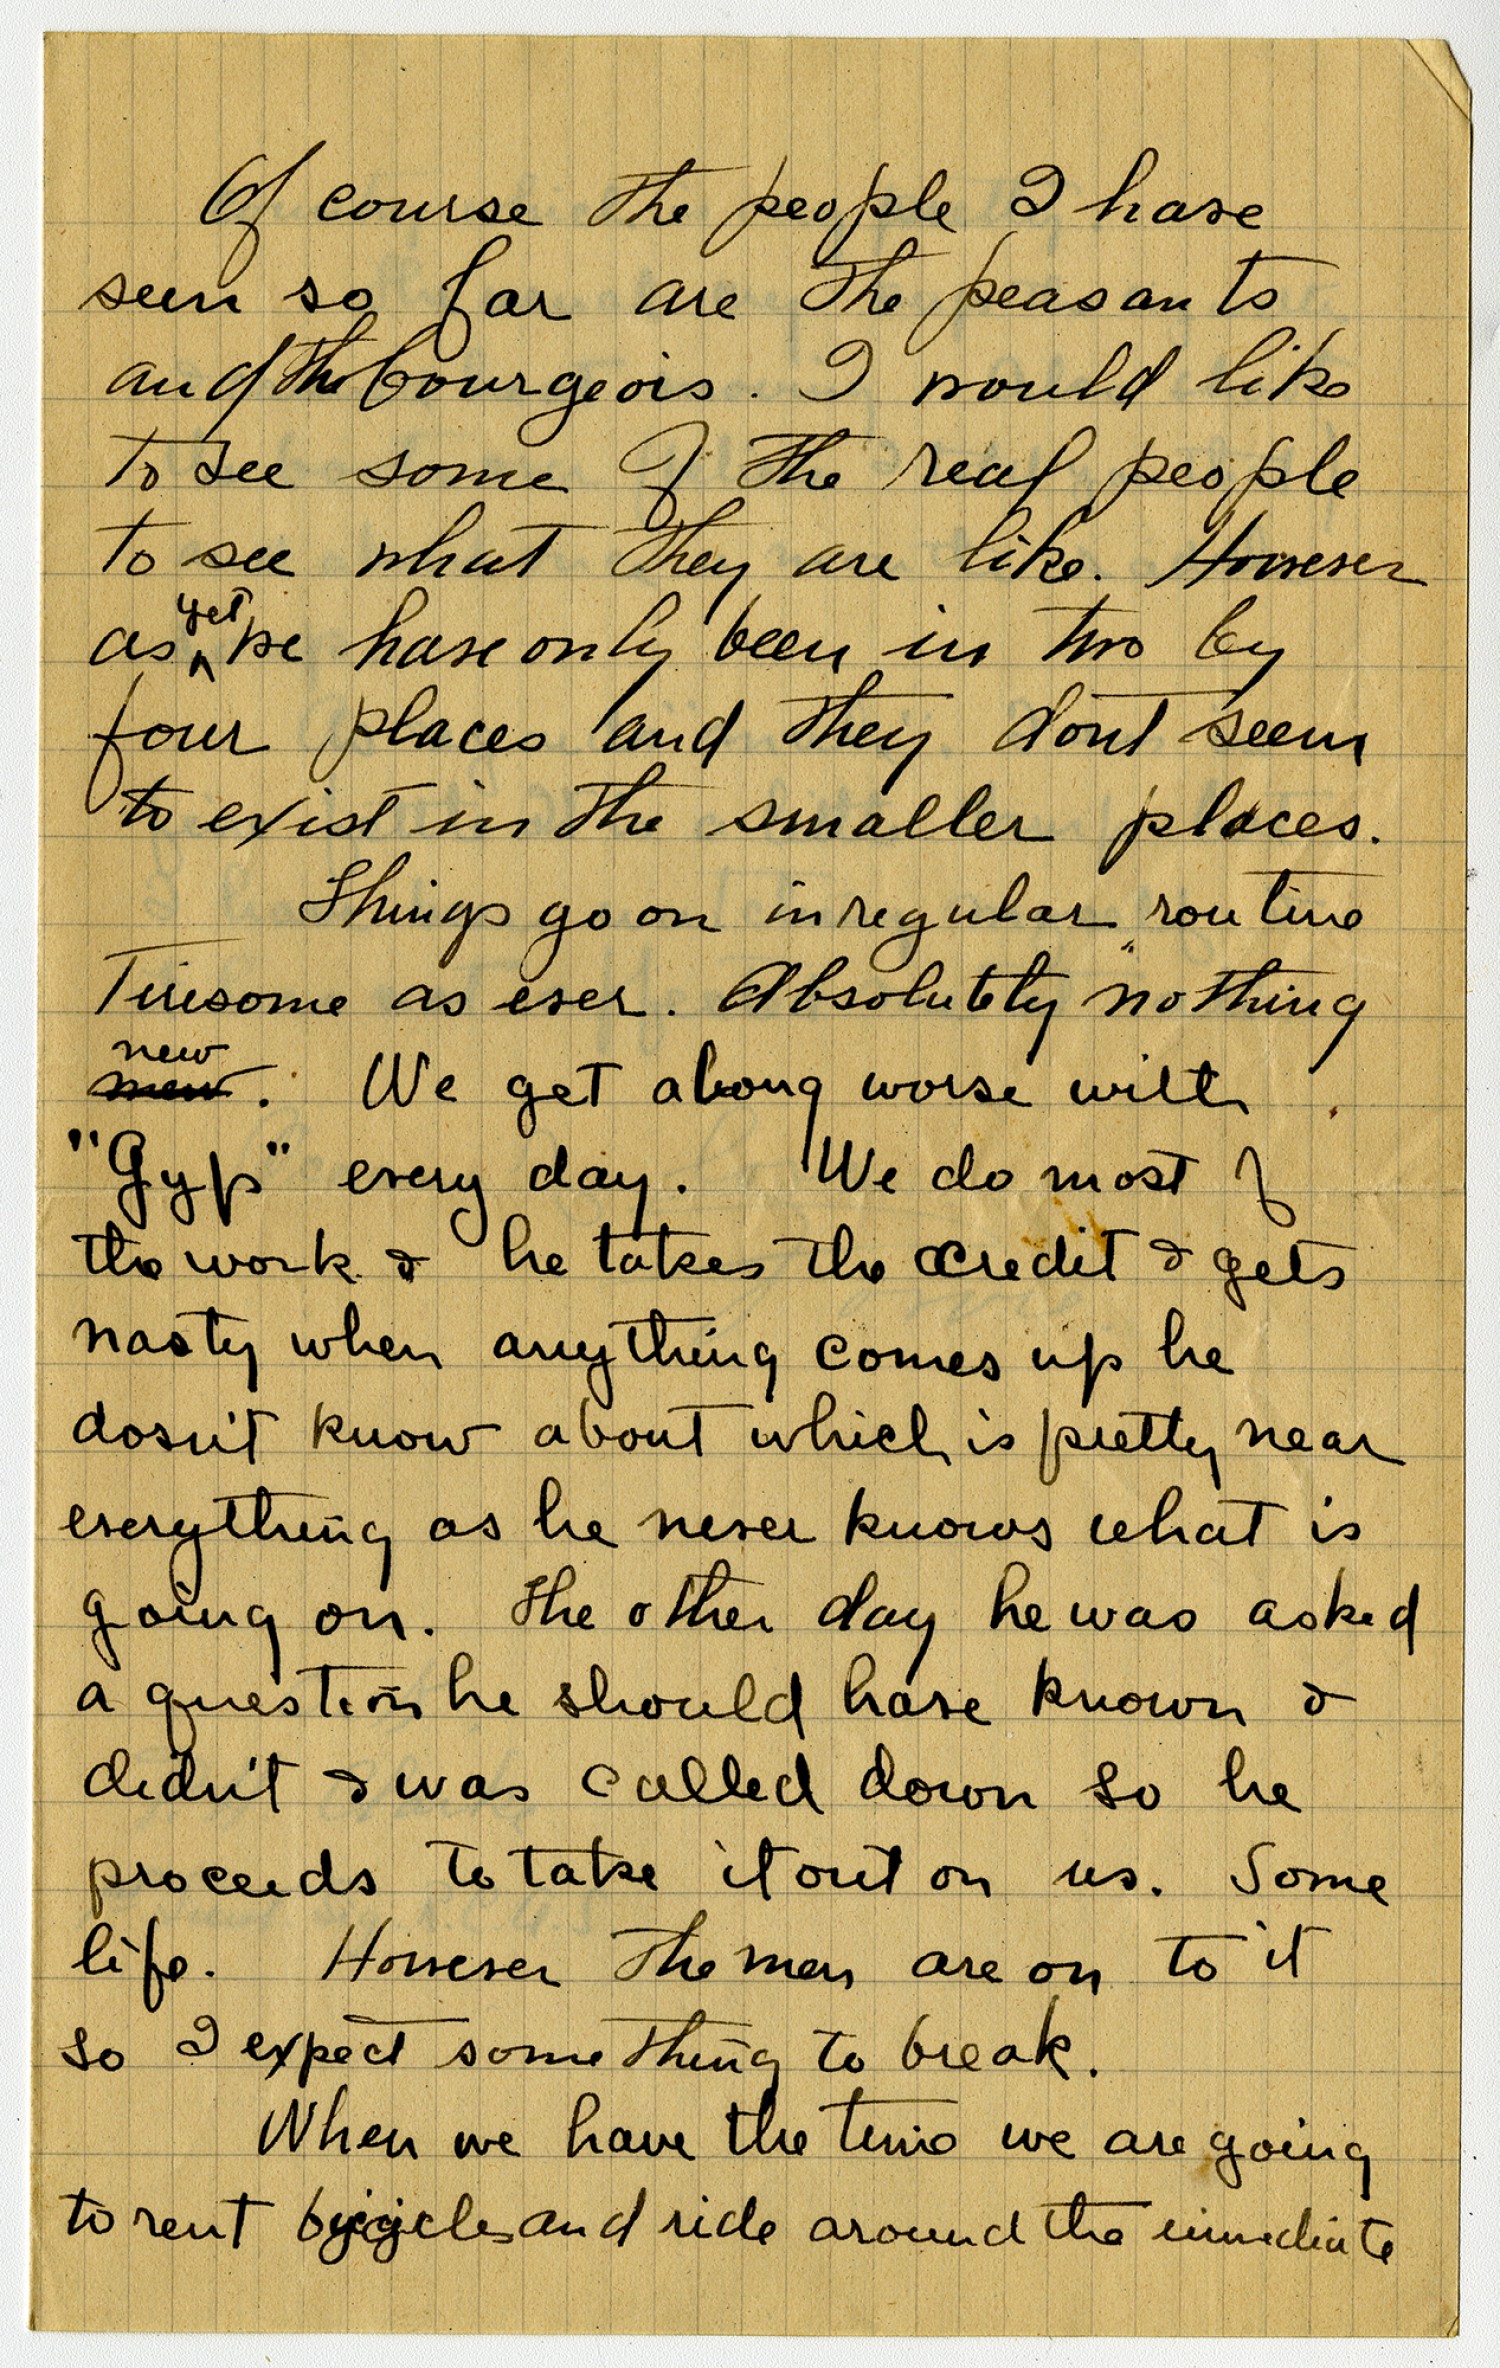 Of course the people I have
seen so far are the peasants
and the bourgeois. I would like
to see some of the real people
to see what they are like. However
as yet we have only been in two by
four places and they dont seem
to exist in the smaller places.
Things go on in regular routine
Tiresome as ever. Absolutely "nothing
new
new. We get along worse with
"Gyp" every day. We do most of
the work & he takes the credit & gets
nasty when anything comes up he
dosn't know about which is pretty near
everything as he never knows what is
going on. The other day he was asked
a question he should have known &
didn't & was called down so he
proceeds to take it out on us. Some
life. However the men are on to it
so I expect something to break.
When we have the time we are going
to rent bycicles and ride around the immediate